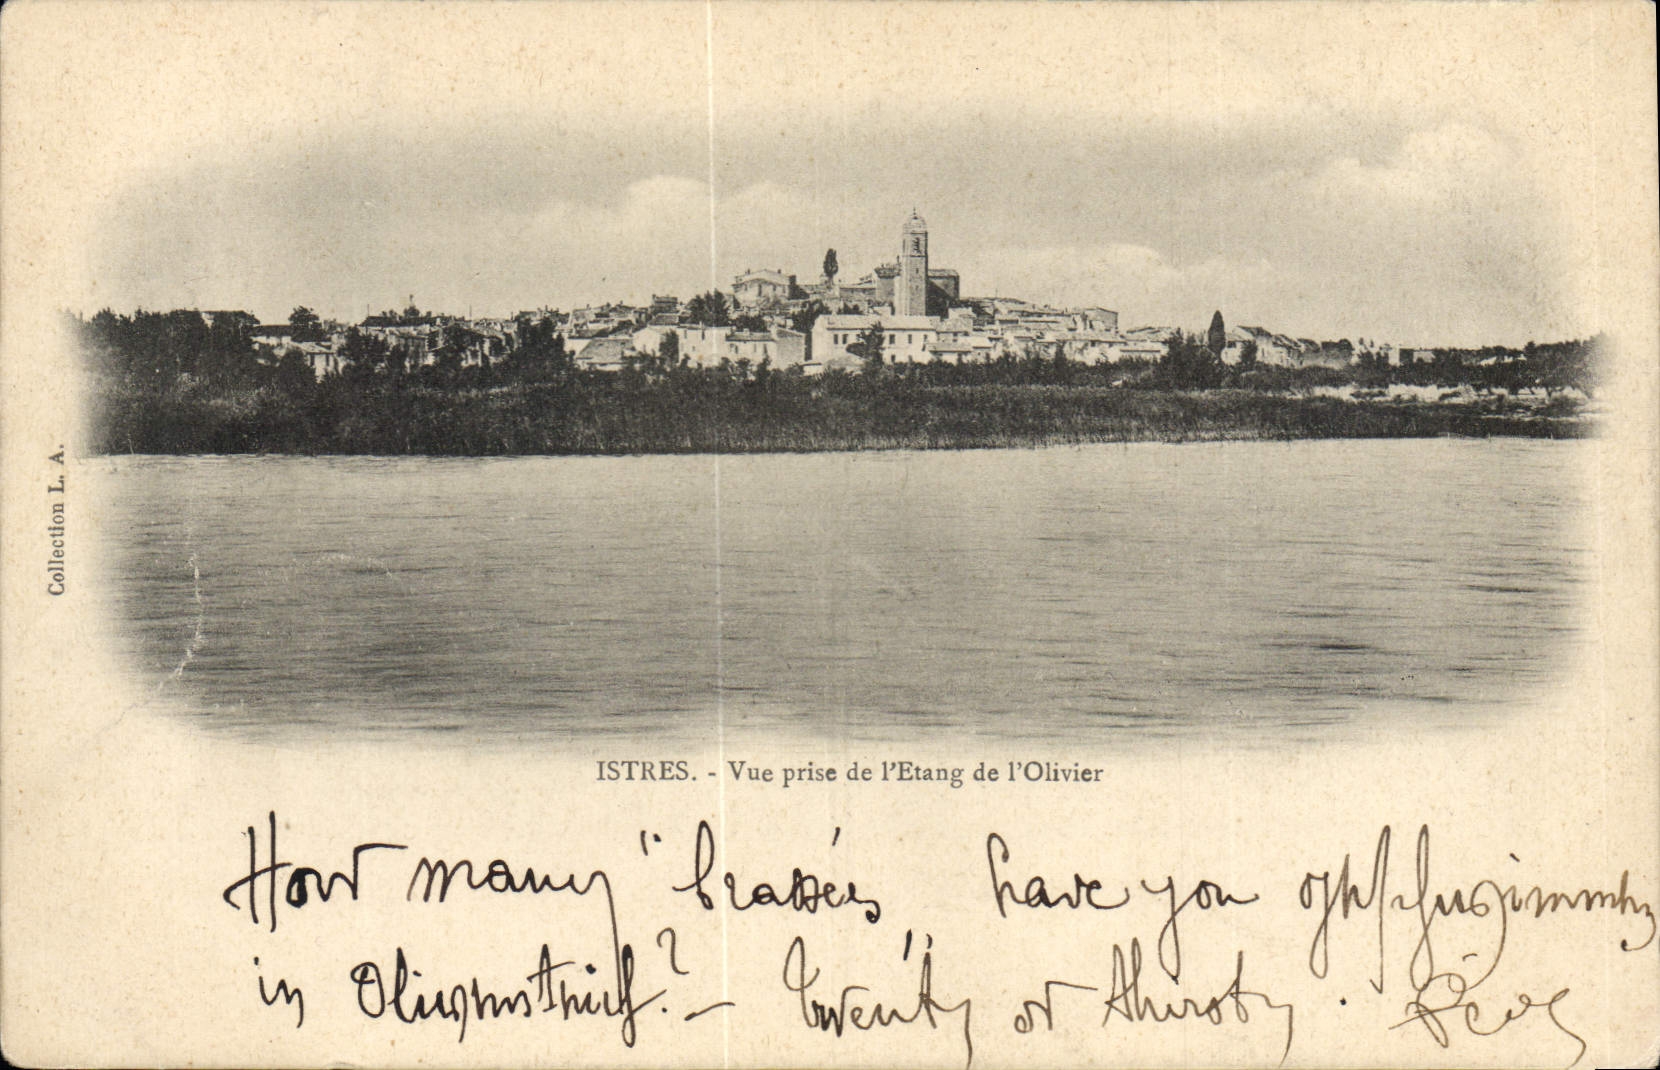 Collection L. A.
ISTRES. - Vue prise de l'Etang de l'Olivier
How many "brassées have you
in ? - Twenty or thirsty.